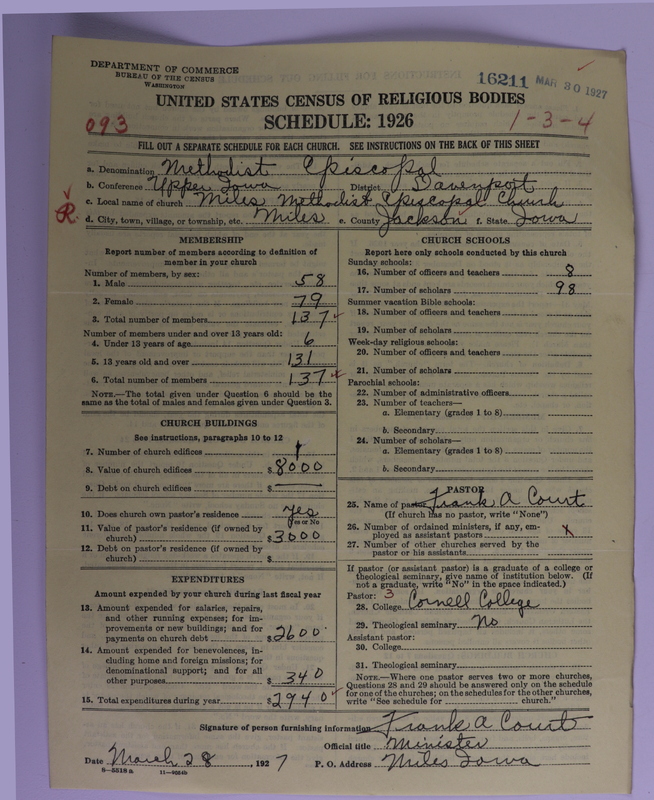 DEPARTMENT OF COMMERCE
BUREAU OF THE CENSUS
WASHINGTON
16211 MAR 30 1927
UNITED STATES CENSUS OF RELIGIOUS BODIES
SCHEDULE: 1926
093
1-3-4
FILL OUT A SEPARATE SCHEDULE FOR EACH CHURCH. SEE INSTRUCTIONS ON THE BACK OF THIS SHEET
a. Denomination Methodist Episcopal
b. Conference Upper Iowa District Davenport
c. Local name of church Miles Methodist Episcopal Church
R.
d. City, town, village, or township, etc. Miles e. County Jackson f. State Iowa
MEMBERSHIP
Report number of members according to definition of
member in your church
Number of members, by sex:
1. Male 58
2. Female 79
3. Total number of members 137
Number of members under and over 13 years old:
4. Under 13 years of age 6
5. 13 years old and over 131
6. Total number of members 137
NOTE.—The total given under Question 6 should be
same as the total of males and females given under Question 3.
CHURCH BUILDINGS
See instructions, paragraphs 10 to 12
7. Number of church edifices 1
8. Value of church edifices $8000
9. Debt on church edifices $ —
10. Does church own pastor's residence yes
Yes or No
11. Value of pastor's residence (if owned by
church) $3000
12. Debt on pastor's residence (if owned by
church) $
EXPENDITURES
Amount expended by your church during last fiscal year
13. Amount expended for salaries, repairs,
and other running expenses; for im-
provements or new buildings; and for
payments on church debt $2600
14. Amount expended for benevolences, in-
cluding home and foreign missions; for
denominational support; and for all
other purposes $ 340
15. Total expenditures during year $2940
CHURCH SCHOOLS
Report here only schools conducted by this church
Sunday schools:
16. Number of officers and teachers 8
17. Number of scholars 98
Summer vacation Bible schools:
18. Number of officers and teachers
19. Number of scholars
Week-day religious schools:
20. Number of officers and teachers
21. Number of scholars
Parochial schools:
22. Number of administrative officers
23. Number of teachers—
a. Elementary (grades 1 to 8)
b. Secondary
24. Number of scholars—
a. Elementary (grades 1 to 8)
b. Secondary
PASTOR
25. Name of pastor Frank A Court
(If church has no pastor, write "None")
26. Number of ordained ministers, if any, em-
ployed as assistant pastors x
27. Number of other churches served by the
pastor or his assistants
If pastor (or assistant pastor) is a graduate of a college or
theological seminary, give name of institution below. (If
not a graduate, write "No" in the space indicated.)
Pastor: 3
28. College Cornell College
29. Theological seminary No
Assistant pastor:
30. College
31. Theological seminary
NOTE.—Where one pastor serves two or more churches,
Questions 28 and 29 should be answered only on the schedule
for one of the churches; on the schedules for the other churches,
write "See schedule for church."
Signature of person furnishing information Frank A Court
Official title Minister
Date March 28, 1927 P. O. Address Miles Iowa
8-5518 a 11-9064b